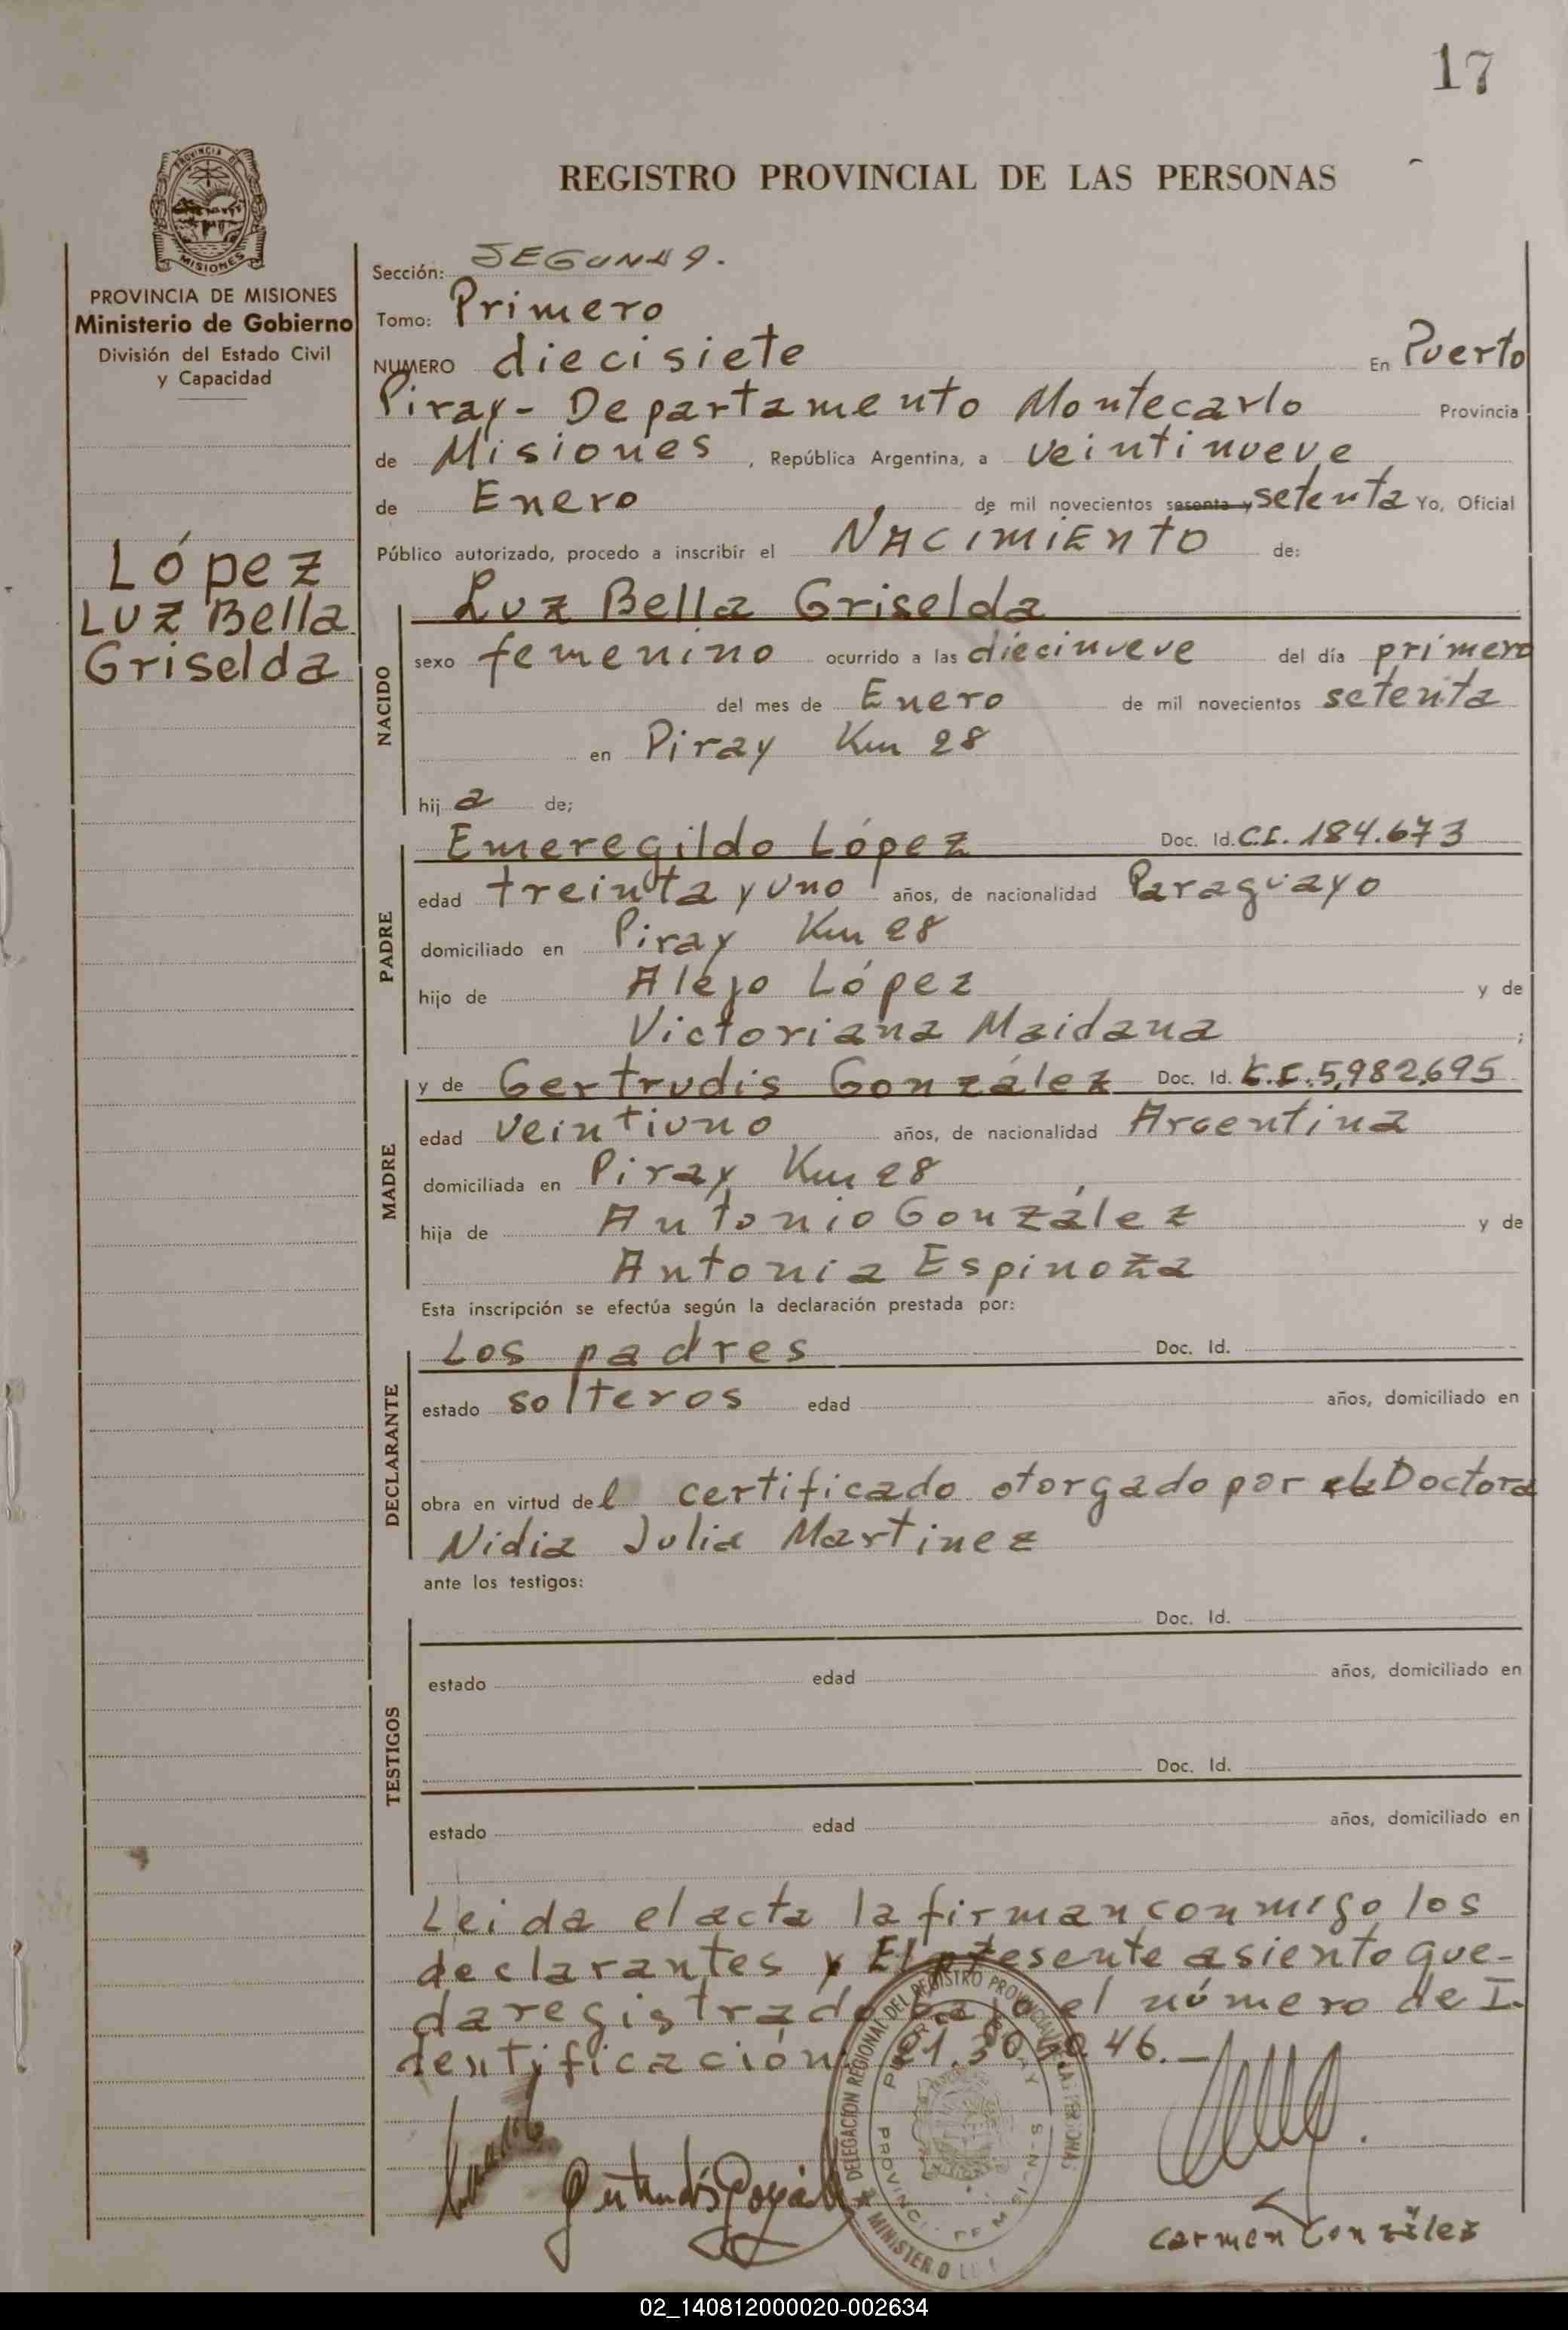 17
REGISTRO PROVINCIAL DE LAS PERSONAS
PROVINCIA DE
MISIONES
PROVINCIA DE MISIONES
Ministerio de Gobierno
División del Estado Civil
y Capacidad
López
Luz Bella
Griselda
Sección: SEGUNDA.
Tomo: Primero
NUMERO diecisiete En Puerto
Piray - Departamento Montecarlo Provincia
de Misiones, República Argentina, a veintinueve
de Enero de mil novecientos sesenta y setenta Yo, Oficial
Público autorizado, procedo a inscribir el NACIMIENTO de:
NACIDO
Luz Bella Griselda
sexo femenino ocurrido a las diecinueve del día primero
del mes de Enero de mil novecientos setenta
en Piray Km 28
hij a de;
PADRE
Emeregildo López Doc. Id. C.I. 184.673
edad treinta y uno años, de nacionalidad Paraguayo
domiciliado en Piray Km 28
hijo de Alejo López y de
Victoriana Maidana ;
MADRE
y de Gertrudis González Doc. Id. 5,982,695
edad veintiuno años, de nacionalidad Argentina
domiciliada en Piray Km 28
hija de Antonio González y de
Antonia Espinoza
Esta inscripción se efectúa según la declaración prestada por:
DECLARANTE
Los padres Doc. Id.
estado solteros edad años, domiciliado en
obra en virtud del certificado otorgado por la Doctora
Nidia Julia Martinez
ante los testigos:
TESTIGOS
Doc. Id.
estado edad años, domiciliado en
Doc. Id.
estado edad años, domiciliado en
Leida el acta la firman conmigo los
declarantes y El presente asiento que-
da registrado bajo el número de I.
dentificación 21.305046.—
DELEGACION REGIONAL DEL REGISTRO
Gertrudis González
Carmen González
02_140812000020-002634